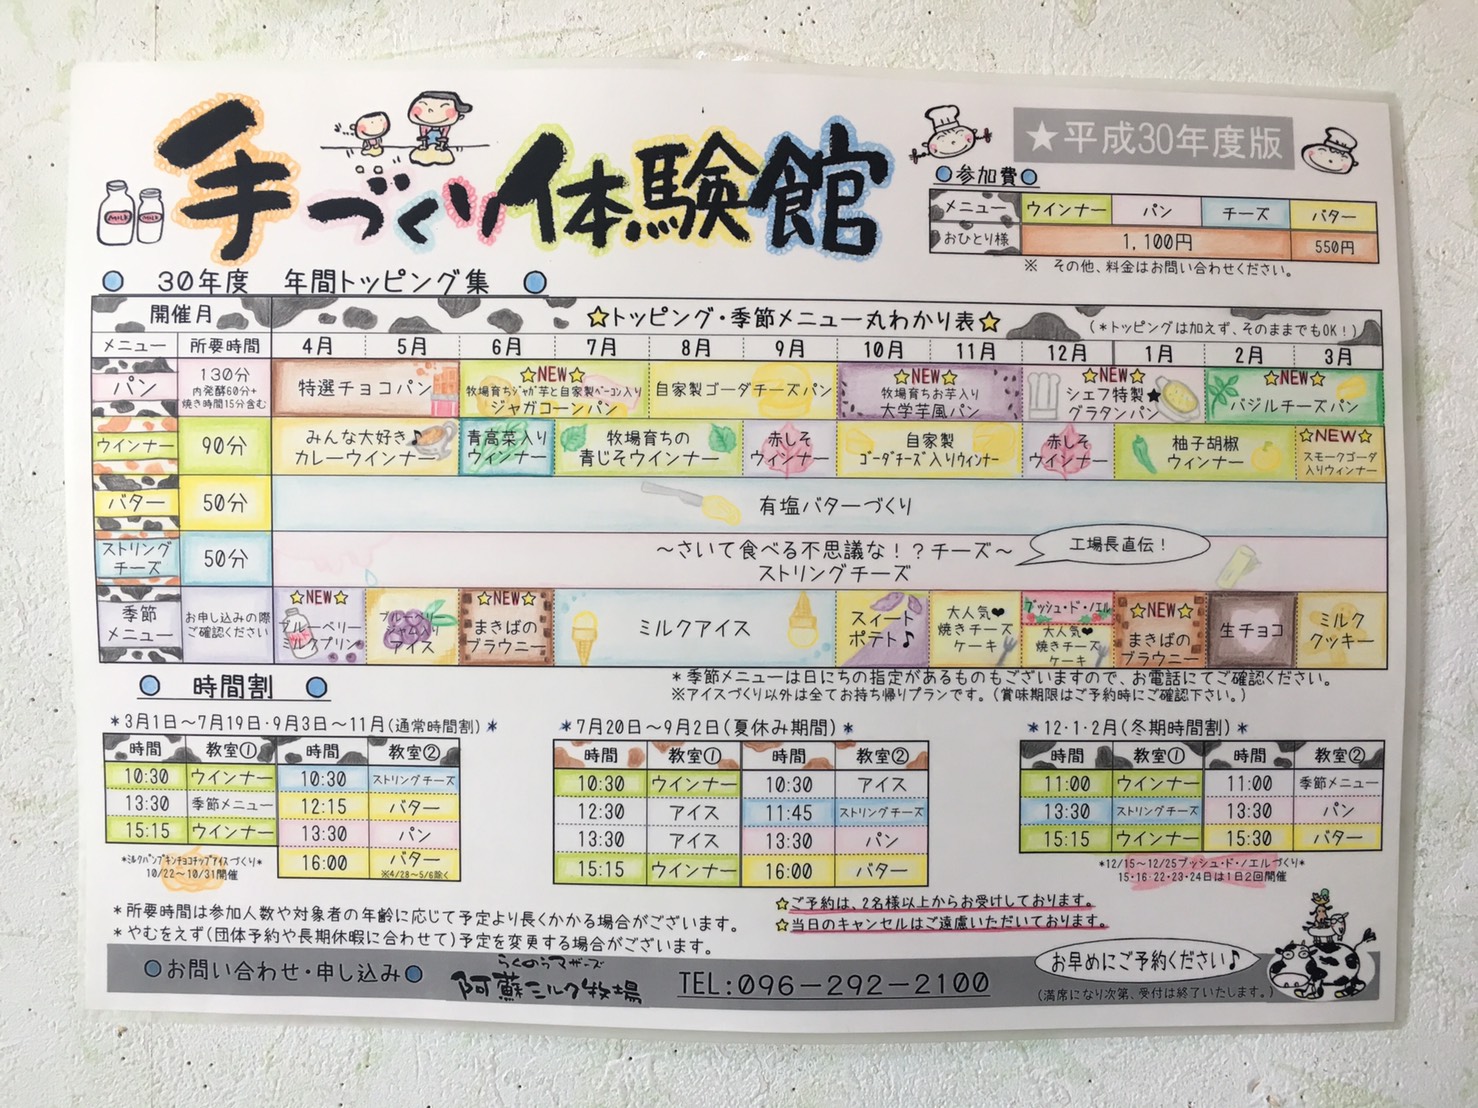 手づくり体験館
MILK
MILK
★平成30年度版
参加費
メニュー ウインナー パン チーズ バター
おひとり様 1,100円 550円
※ その他、料金はお問い合わせください。
30年度 年間トッピング集
開催月 ☆トッピング・季節メニュー丸わかり表☆ (*トッピングは加えず、そのままでもOK!)
メニュー 所要時間 4月 5月 6月 7月 8月 9月 10月 11月 12月 1月 2月 3月
パン
130分
内発酵60分+
焼き時間15分含む
特選チョコパン
☆NEW☆
牧場育ちジャガ芋と自家製ベーコン入り
ジャガコーンパン
自家製ゴーダチーズパン
☆NEW☆
牧場育ちお芋入り
大学芋風パン
☆NEW☆
シェフ特製★
グラタンパン
☆NEW☆
バジルチーズパン
ウインナー
90分
みんな大好き♪
カレーウインナー
青高菜入り
ウィンナー
牧場育ちの
青じそウインナー
赤しそ
ウィンナー
自家製
ゴーダチーズ入りウィンナー
赤しそ
ウインナー
柚子胡椒
ウィンナー
☆NEW☆
スモークゴーダ
入りウィンナー
バター
50分
有塩バターづくり
ストリング
チーズ
50分
～さいて食べる不思議な!?チーズ～
ストリングチーズ
工場長直伝!
季節
メニュー
お申し込みの際
ご確認ください
☆NEW☆
ブルーベリー
ミルクプリン
ブルーベリー
ジャム入り
アイス
☆NEW☆
まきばの
ブラウニー
ミルクアイス
スィート
ポテト♪
大人気♥
焼きチーズ
ケーキ
ブッシュ・ド・ノエル
大人気♥
焼きチーズ
ケーキ
☆NEW☆
まきばの
ブラウニー
生チョコ
ミルク
クッキー
*季節メニューは日にちの指定があるものもございますので、お電話にてご確認ください。
※アイスづくり以外は全てお持ち帰りプランです。(賞味期限はご予約時にご確認下さい。)
時間割
*3月1日～7月19日・9月3日～11月(通常時間割)*
時間 教室① 時間 教室②
10:30 ウインナー 10:30 ストリングチーズ
13:30 季節メニュー 12:15 バター
15:15 ウインナー 13:30 パン
16:00 バター
※4/28～5/6除く
*ミルクパンプキンチョコチップアイスづくり*
10/22～10/31開催
*7月20日～9月2日(夏休み期間)*
時間 教室① 時間 教室②
10:30 ウインナー 10:30 アイス
12:30 アイス 11:45 ストリングチーズ
13:30 アイス 13:30 パン
15:15 ウインナー 16:00 バター
*12・1・2月(冬期時間割)*
時間 教室① 時間 教室②
11:00 ウインナー 11:00 季節メニュー
13:30 ストリングチーズ 13:30 パン
15:15 ウインナー 15:30 バター
*12/15～12/25ブッシュ・ド・ノエルづくり*
15・16・22・23・24日は1日2回開催
*所要時間は参加人数や対象者の年齢に応じて予定より長くかかる場合がございます。
*やむをえず(団体予約や長期休暇に合わせて)予定を変更する場合がございます。
☆ご予約は、2名様以上からお受けしております。
☆当日のキャンセルはご遠慮いただいております。
お問い合わせ・申し込み
らくのうマザーズ
阿蘇ミルク牧場
TEL:096-292-2100
お早めにご予約ください♪
(満席になり次第、受付は終了いたします。)